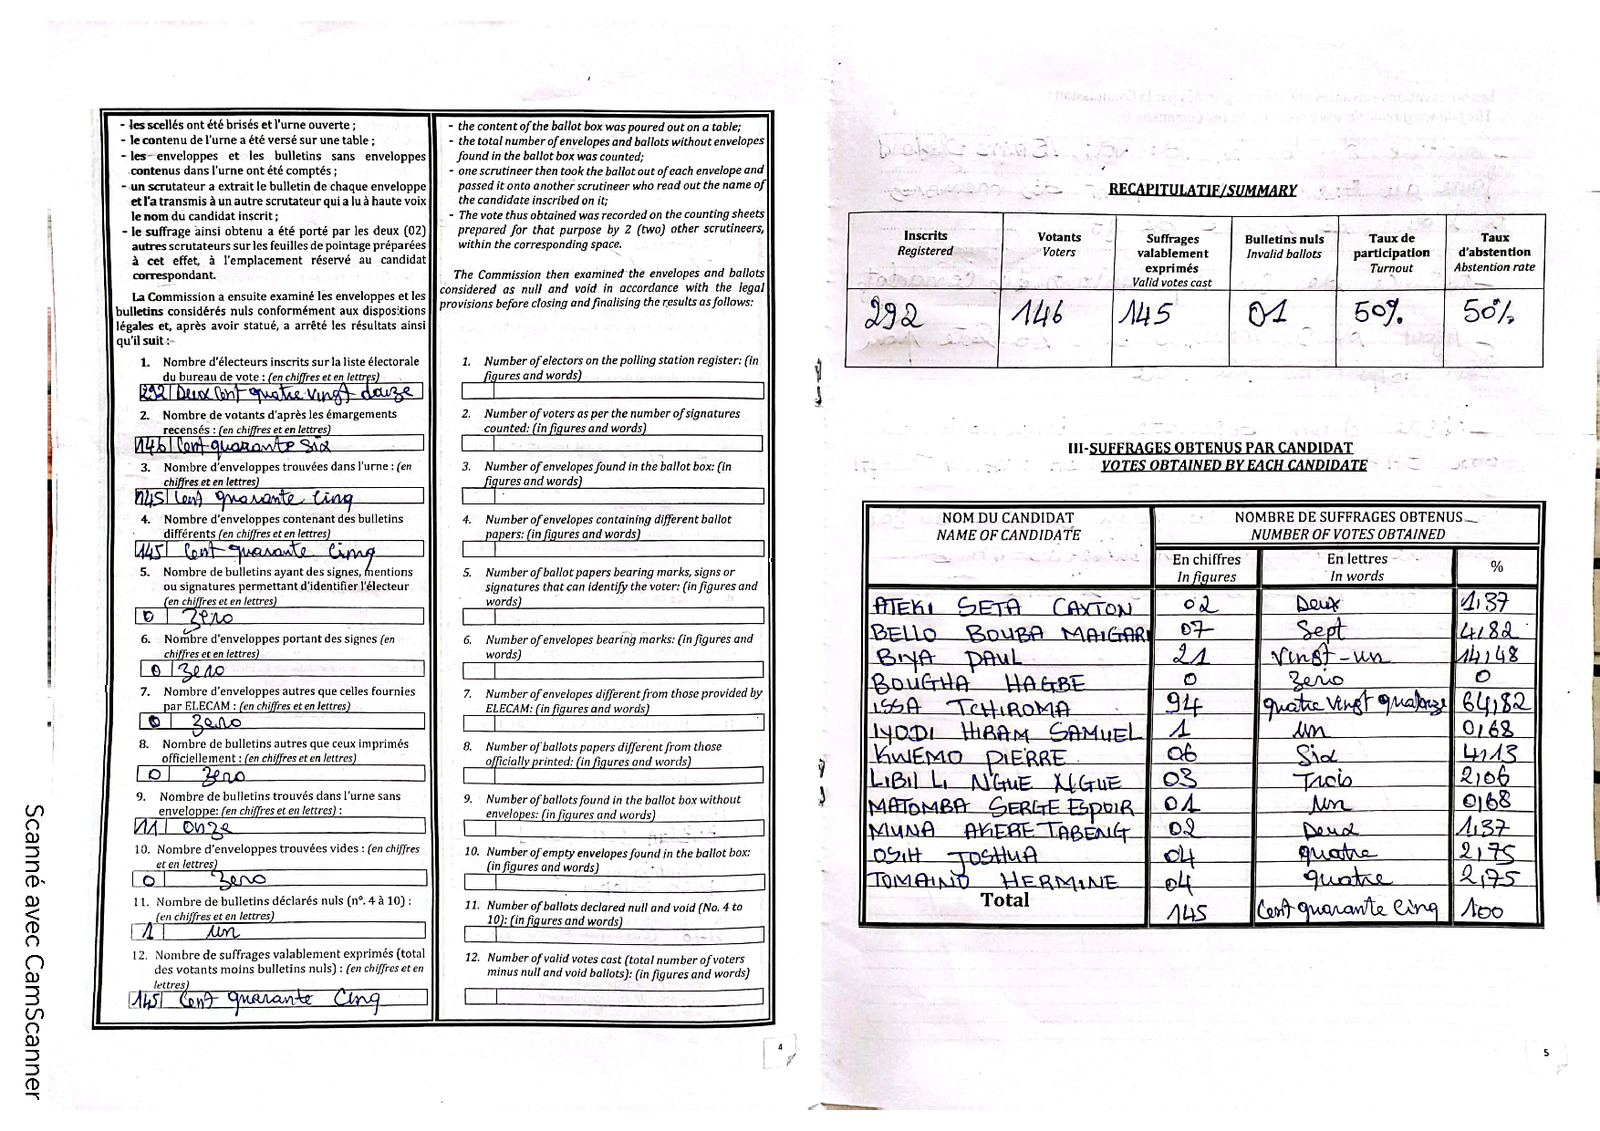 - les scellés ont été brisés et l'urne ouverte ;
- le contenu de l'urne a été versé sur une table ;
- les enveloppes et les bulletins sans enveloppes
contenus dans l'urne ont été comptés ;
- un scrutateur a extrait le bulletin de chaque enveloppe
et l'a transmis à un autre scrutateur qui a lu à haute voix
le nom du candidat inscrit ;
- le suffrage ainsi obtenu a été porté par les deux (02)
autres scrutateurs sur les feuilles de pointage préparées
à cet effet, à l'emplacement réservé au candidat
correspondant.
La Commission a ensuite examiné les enveloppes et les
bulletins considérés nuls conformément aux dispositions
légales et, après avoir statué, a arrêté les résultats ainsi
qu'il suit :-
1. Nombre d'électeurs inscrits sur la liste électorale
du bureau de vote : (en chiffres et en lettres)
292 Deux Cent quatre vingt douze
2. Nombre de votants d'après les émargements
recensés : (en chiffres et en lettres)
146 Cent quarante six
3. Nombre d'enveloppes trouvées dans l'urne : (en
chiffres et en lettres)
145 Cent quarante cinq
4. Nombre d'enveloppes contenant des bulletins
différents (en chiffres et en lettres)
145 Cent quarante cinq
5. Nombre de bulletins ayant des signes, mentions
ou signatures permettant d'identifier l'électeur
(en chiffres et en lettres)
0 Zero
6. Nombre d'enveloppes portant des signes (en
chiffres et en lettres)
0 Zero
7. Nombre d'enveloppes autres que celles fournies
par ELECAM : (en chiffres et en lettres)
0 Zero
8. Nombre de bulletins autres que ceux imprimés
officiellement : (en chiffres et en lettres)
0 Zero
9. Nombre de bulletins trouvés dans l'urne sans
enveloppe: (en chiffres et en lettres) :
11 onze
10. Nombre d'enveloppes trouvées vides : (en chiffres
et en lettres)
0 Zero
11. Nombre de bulletins déclarés nuls (n°. 4 à 10) :
(en chiffres et en lettres)
1 un
12. Nombre de suffrages valablement exprimés (total
des votants moins bulletins nuls) : (en chiffres et en
lettres)
145 Cent quarante Cinq
- the content of the ballot box was poured out on a table;
- the total number of envelopes and ballots without envelopes
found in the ballot box was counted;
- one scrutineer then took the ballot out of each envelope and
passed it onto another scrutineer who read out the name of
the candidate inscribed on it;
- The vote thus obtained was recorded on the counting sheets
prepared for that purpose by 2 (two) other scrutineers,
within the corresponding space.
The Commission then examined the envelopes and ballots
considered as null and void in accordance with the legal
provisions before closing and finalising the results as follows:
1. Number of electors on the polling station register: (in
figures and words)
2. Number of voters as per the number of signatures
counted: (in figures and words)
3. Number of envelopes found in the ballot box: (in
figures and words)
4. Number of envelopes containing different ballot
papers: (in figures and words)
5. Number of ballot papers bearing marks, signs or
signatures that can identify the voter: (in figures and
words)
6. Number of envelopes bearing marks: (in figures and
words)
7. Number of envelopes different from those provided by
ELECAM: (in figures and words)
8. Number of ballots papers different from those
officially printed: (in figures and words)
9. Number of ballots found in the ballot box without
envelopes: (in figures and words)
10. Number of empty envelopes found in the ballot box:
(in figures and words)
11. Number of ballots declared null and void (No. 4 to
10): (in figures and words)
12. Number of valid votes cast (total number of voters
minus null and void ballots): (in figures and words)
4
Scanné avec CamScanner
RECAPITULATIF/SUMMARY
Inscrits Registered | Votants Voters | Suffrages valablement exprimés Valid votes cast | Bulletins nuls Invalid ballots | Taux de participation Turnout | Taux d'abstention Abstention rate
292 146 145 01 50% 50%
III-SUFFRAGES OBTENUS PAR CANDIDAT
VOTES OBTAINED BY EACH CANDIDATE
NOM DU CANDIDAT NOMBRE DE SUFFRAGES OBTENUS
NAME OF CANDIDATE NUMBER OF VOTES OBTAINED
En chiffres En lettres %
In figures In words
ATEKI SETA CAXTON 02 Deux 1,37
BELLO BOUBA MAIGARI 07 Sept 4,82
BIYA PAUL 21 Vingt-un 14,48
BOUGHA HAGBE 0 Zero 0
ISSA TCHIROMA 94 quatre vingt quatorze 64,82
IYODI HIRAM SAMUEL 1 un 0,68
KWEMO PIERRE 06 Six 4,13
LIBII LI NGUE NGUE 03 Trois 2,06
MATOMBA SERGE ESPOIR 01 un 0,68
MUNA AKERE TABENG 02 Deux 1,37
OSIH JOSHUA 04 quatre 2,75
TOMAINO HERMINE 04 quatre 2,75
Total 145 Cent quarante Cinq 100
5